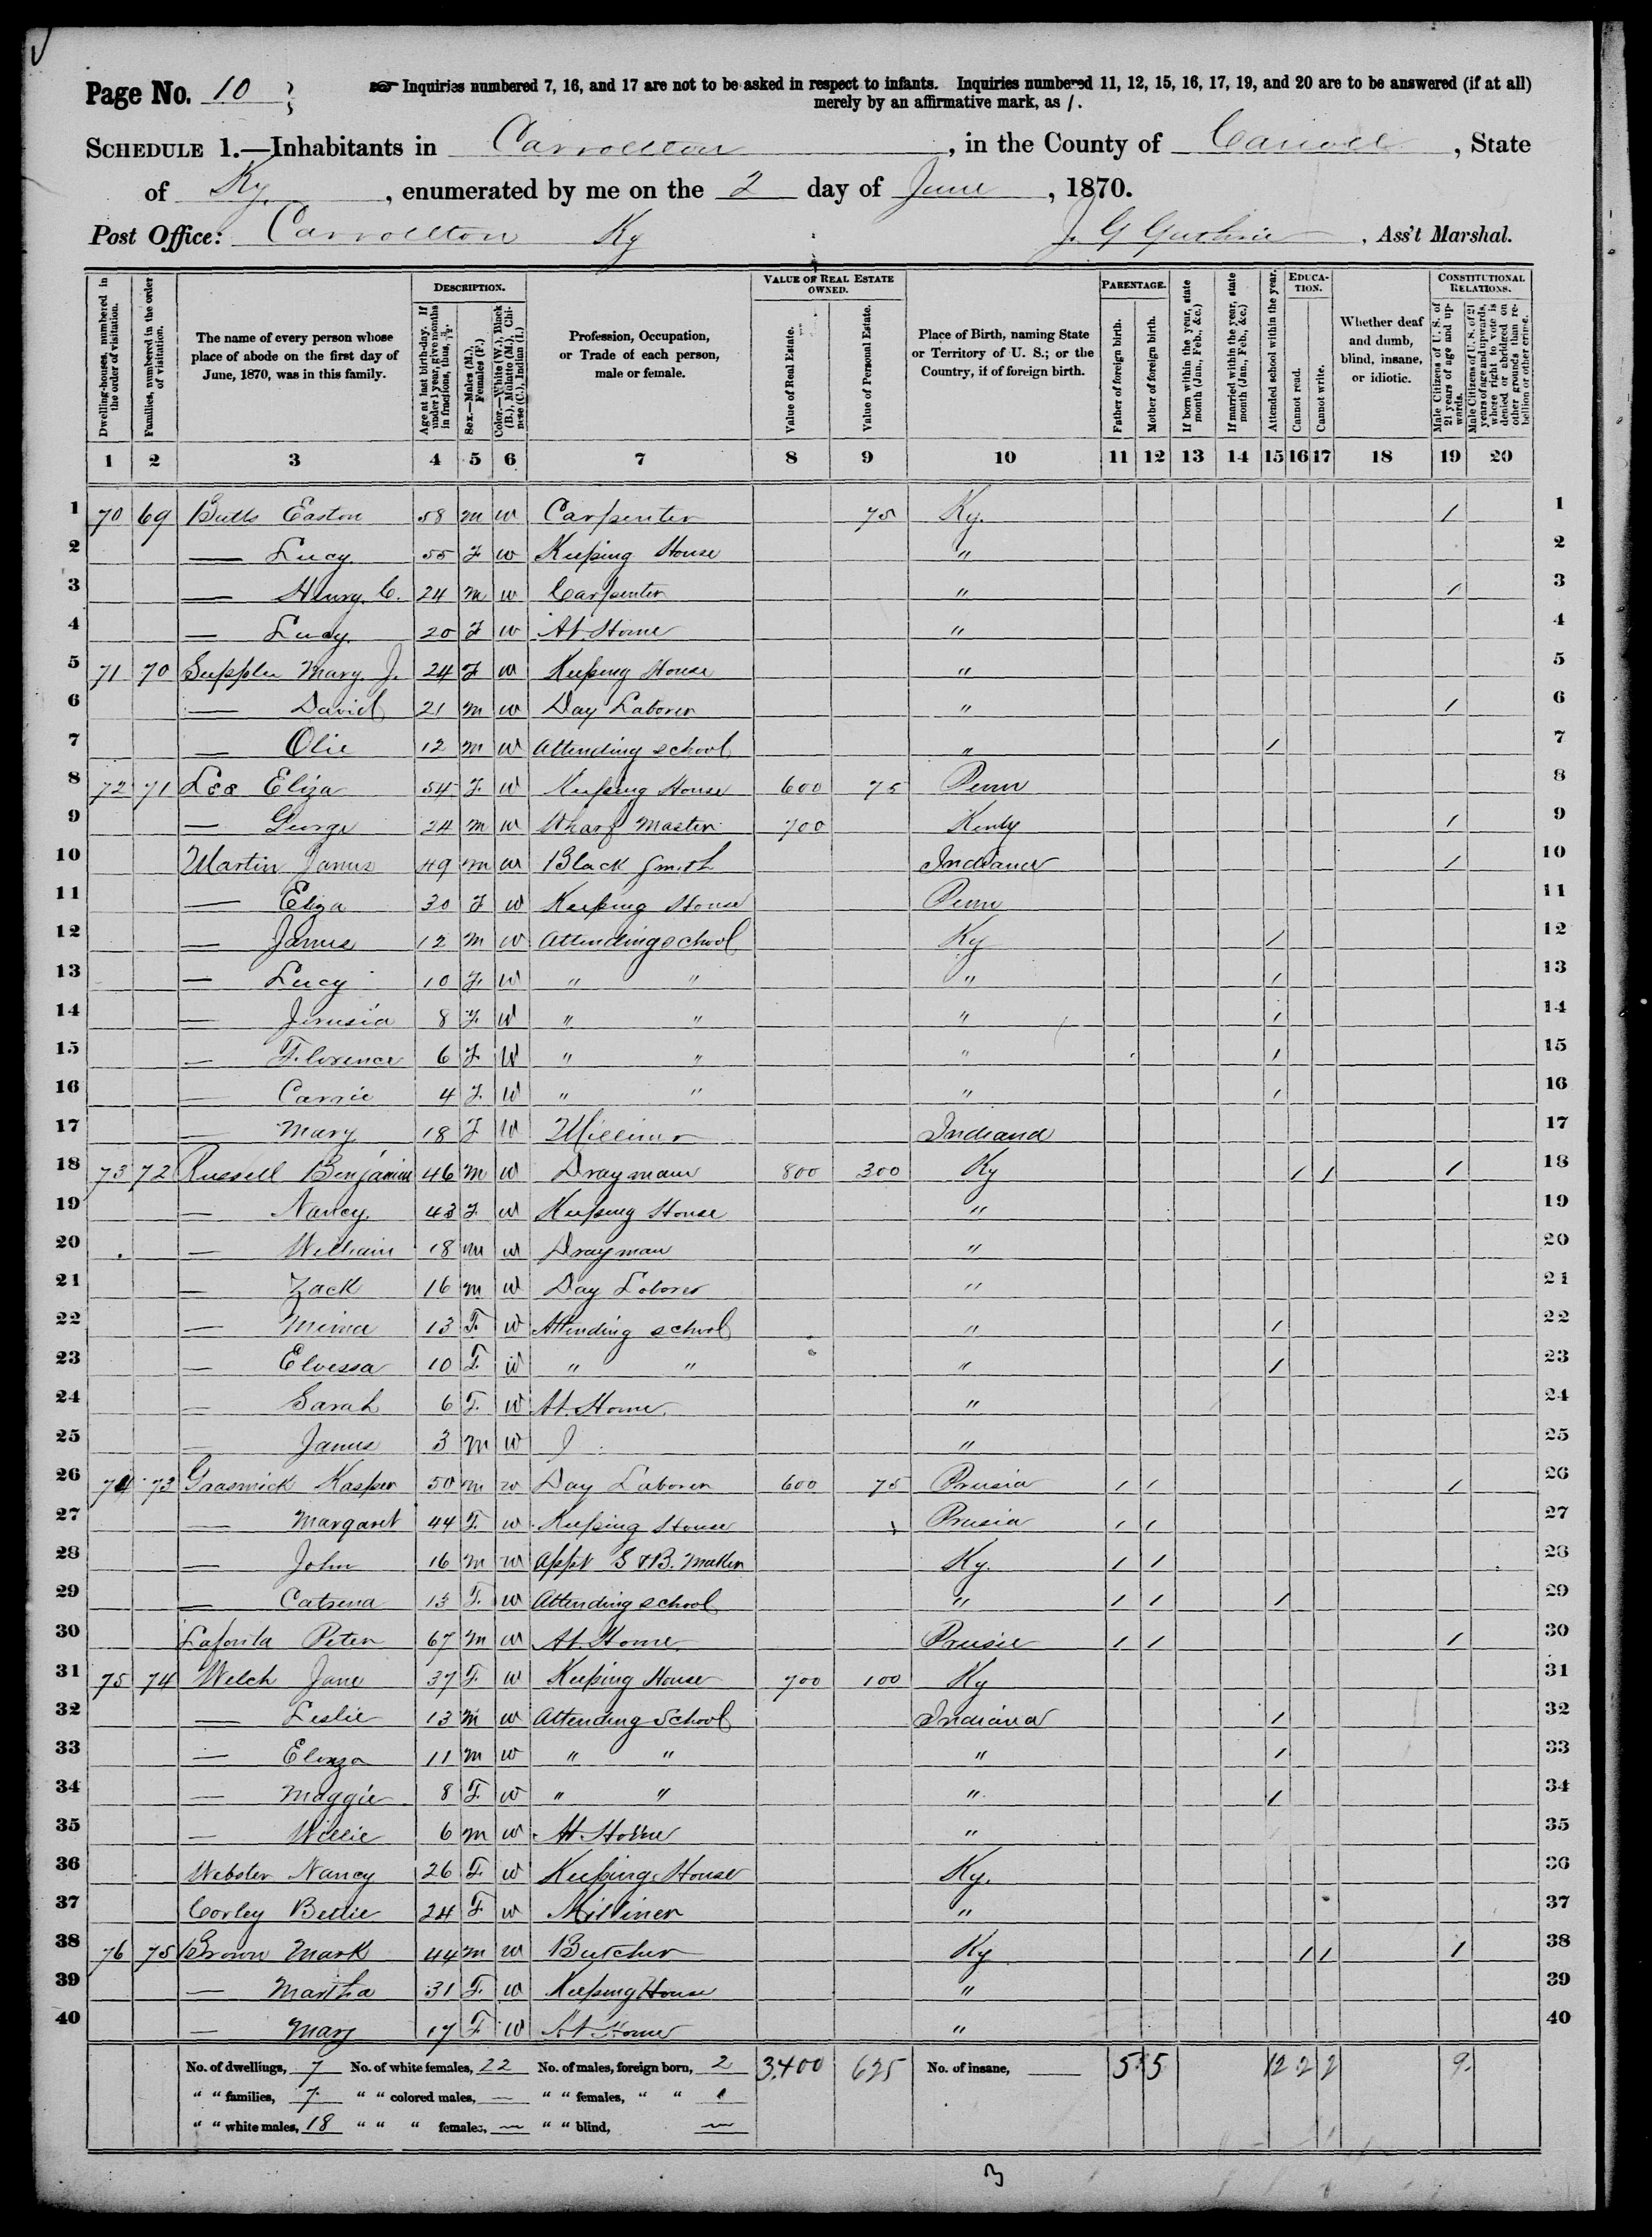 Page No. 10
Inquiries numbered 7, 16, and 17 are not to be asked in respect to infants. Inquiries numbered 11, 12, 15, 16, 17, 19, and 20 are to be answered (if at all)
merely by an affirmative mark, as /.
SCHEDULE 1.—Inhabitants in Carrollton, in the County of Carroll, State
of Ky., enumerated by me on the 2 day of June, 1870.
Post Office: Carrollton Ky J. G Guthrie, Ass't Marshal.
Dwelling-houses, numbered in the order of visitation.
Families, numbered in the order of visitation.
The name of every person whose place of abode on the first day of June, 1870, was in this family.
DESCRIPTION.
Age at last birth-day. If under 1 year, give months in fractions, thus,
Sex.—Males (M.), Females (F.)
Color.—White (W.), Black (B.), Mulatto (M.), Chinese (C.), Indian (I.)
Profession, Occupation, or Trade of each person, male or female.
VALUE OF REAL ESTATE OWNED.
Value of Real Estate.
Value of Personal Estate.
Place of Birth, naming State or Territory of U. S.; or the Country, if of foreign birth.
PARENTAGE.
Father of foreign birth.
Mother of foreign birth.
If born within the year, state month (Jan., Feb., &c.)
If married within the year, state month (Jan., Feb., &c.)
Attended school within the year.
EDUCATION.
Cannot read.
Cannot write.
Whether deaf and dumb, blind, insane, or idiotic.
CONSTITUTIONAL RELATIONS.
Male Citizens of U. S. of 21 years of age and upwards.
Male Citizens of U. S. of 21 years of age and upwards, whose right to vote is denied or abridged on other grounds than rebellion or other crime.
1 2 3 4 5 6 7 8 9 10 11 12 13 14 15 16 17 18 19 20
1 70 69 Butts Easton 58 m w Carpenter 75 Ky. / 1
2 — Lucy 55 F w Keeping House " 2
3 — Henry C. 24 m w Carpenter " / 3
4 — Lucy 20 F w At Home " 4
5 71 70 Mary J. 24 F w Keeping House " 5
6 — David 21 m w Day Laborer " / 6
7 — Olie 12 m w Attending school " / 7
8 72 71 Lee Eliza 54 F w Keeping House 600 75 Penn 8
9 — George 24 m w Wharf Master 700 Kenty / 9
10 Martin James 49 m w Black Smith Indiana / 10
11 — Eliza 30 F w Keeping House Penn 11
12 — James 12 m w Attending school Ky / 12
13 — Lucy 10 F. w " " " / 13
14 — Jerusia 8 F. w " " " / 14
15 — Florence 6 F. w " " " / 15
16 — Carrie 4 F. w " " " / 16
17 — Mary 18 F w Milliner Indiana 17
18 73 72 Russell Benjamin 46 m w Drayman 800 300 Ky / / / 18
19 — Nancy. 43 F. w Keeping House " 19
20 — William 18 m w Drayman " 20
21 — Zack 16 m w Day Laborer " 21
22 — 13 F. w Attending school " / 22
23 — 10 F. w " " " / 23
24 — Sarah 6 F. w At Home " 24
25 — James 3 m w " 25
26 74 73 Grasmick Kasper 50 m w Day Laborer 600 75 Prusia / / / 26
27 — Margaret 44 F. w Keeping House Prusia / / 27
28 — John 16 m w Appt S & B. Maker Ky. / / 28
29 — Catrena 13 F. w Attending school " / / / 29
30 Peter 67 m w At Home Prusia / / / 30
31 75 74 Welch Jane 37 F. w Keeping House 700 100 Ky 31
32 — Leslie 13 m w Attending School Indiana / 32
33 — Elonzo 11 m w " " " / 33
34 — Maggie 8 F. w " " " / 34
35 — Willie 6 m w At Home " 35
36 Webster Nancy 26 F. w Keeping House Ky. 36
37 Corley Bettie 24 F w Milliner " 37
38 76 75 Brown Mark 44 m w Butcher Ky / / / 38
39 — Martha 31 F. w Keeping House " 39
40 — Mary 17 F w At Home " 40
No. of dwellings, 7 No. of white females, 22 No. of males, foreign born, 2 3.400 625 No. of insane, — 5 5 12 2 2 9.
" " families, 7 " " colored males, — " " females, " " 1
" " white males, 18 " " " females, — " " blind, —
3